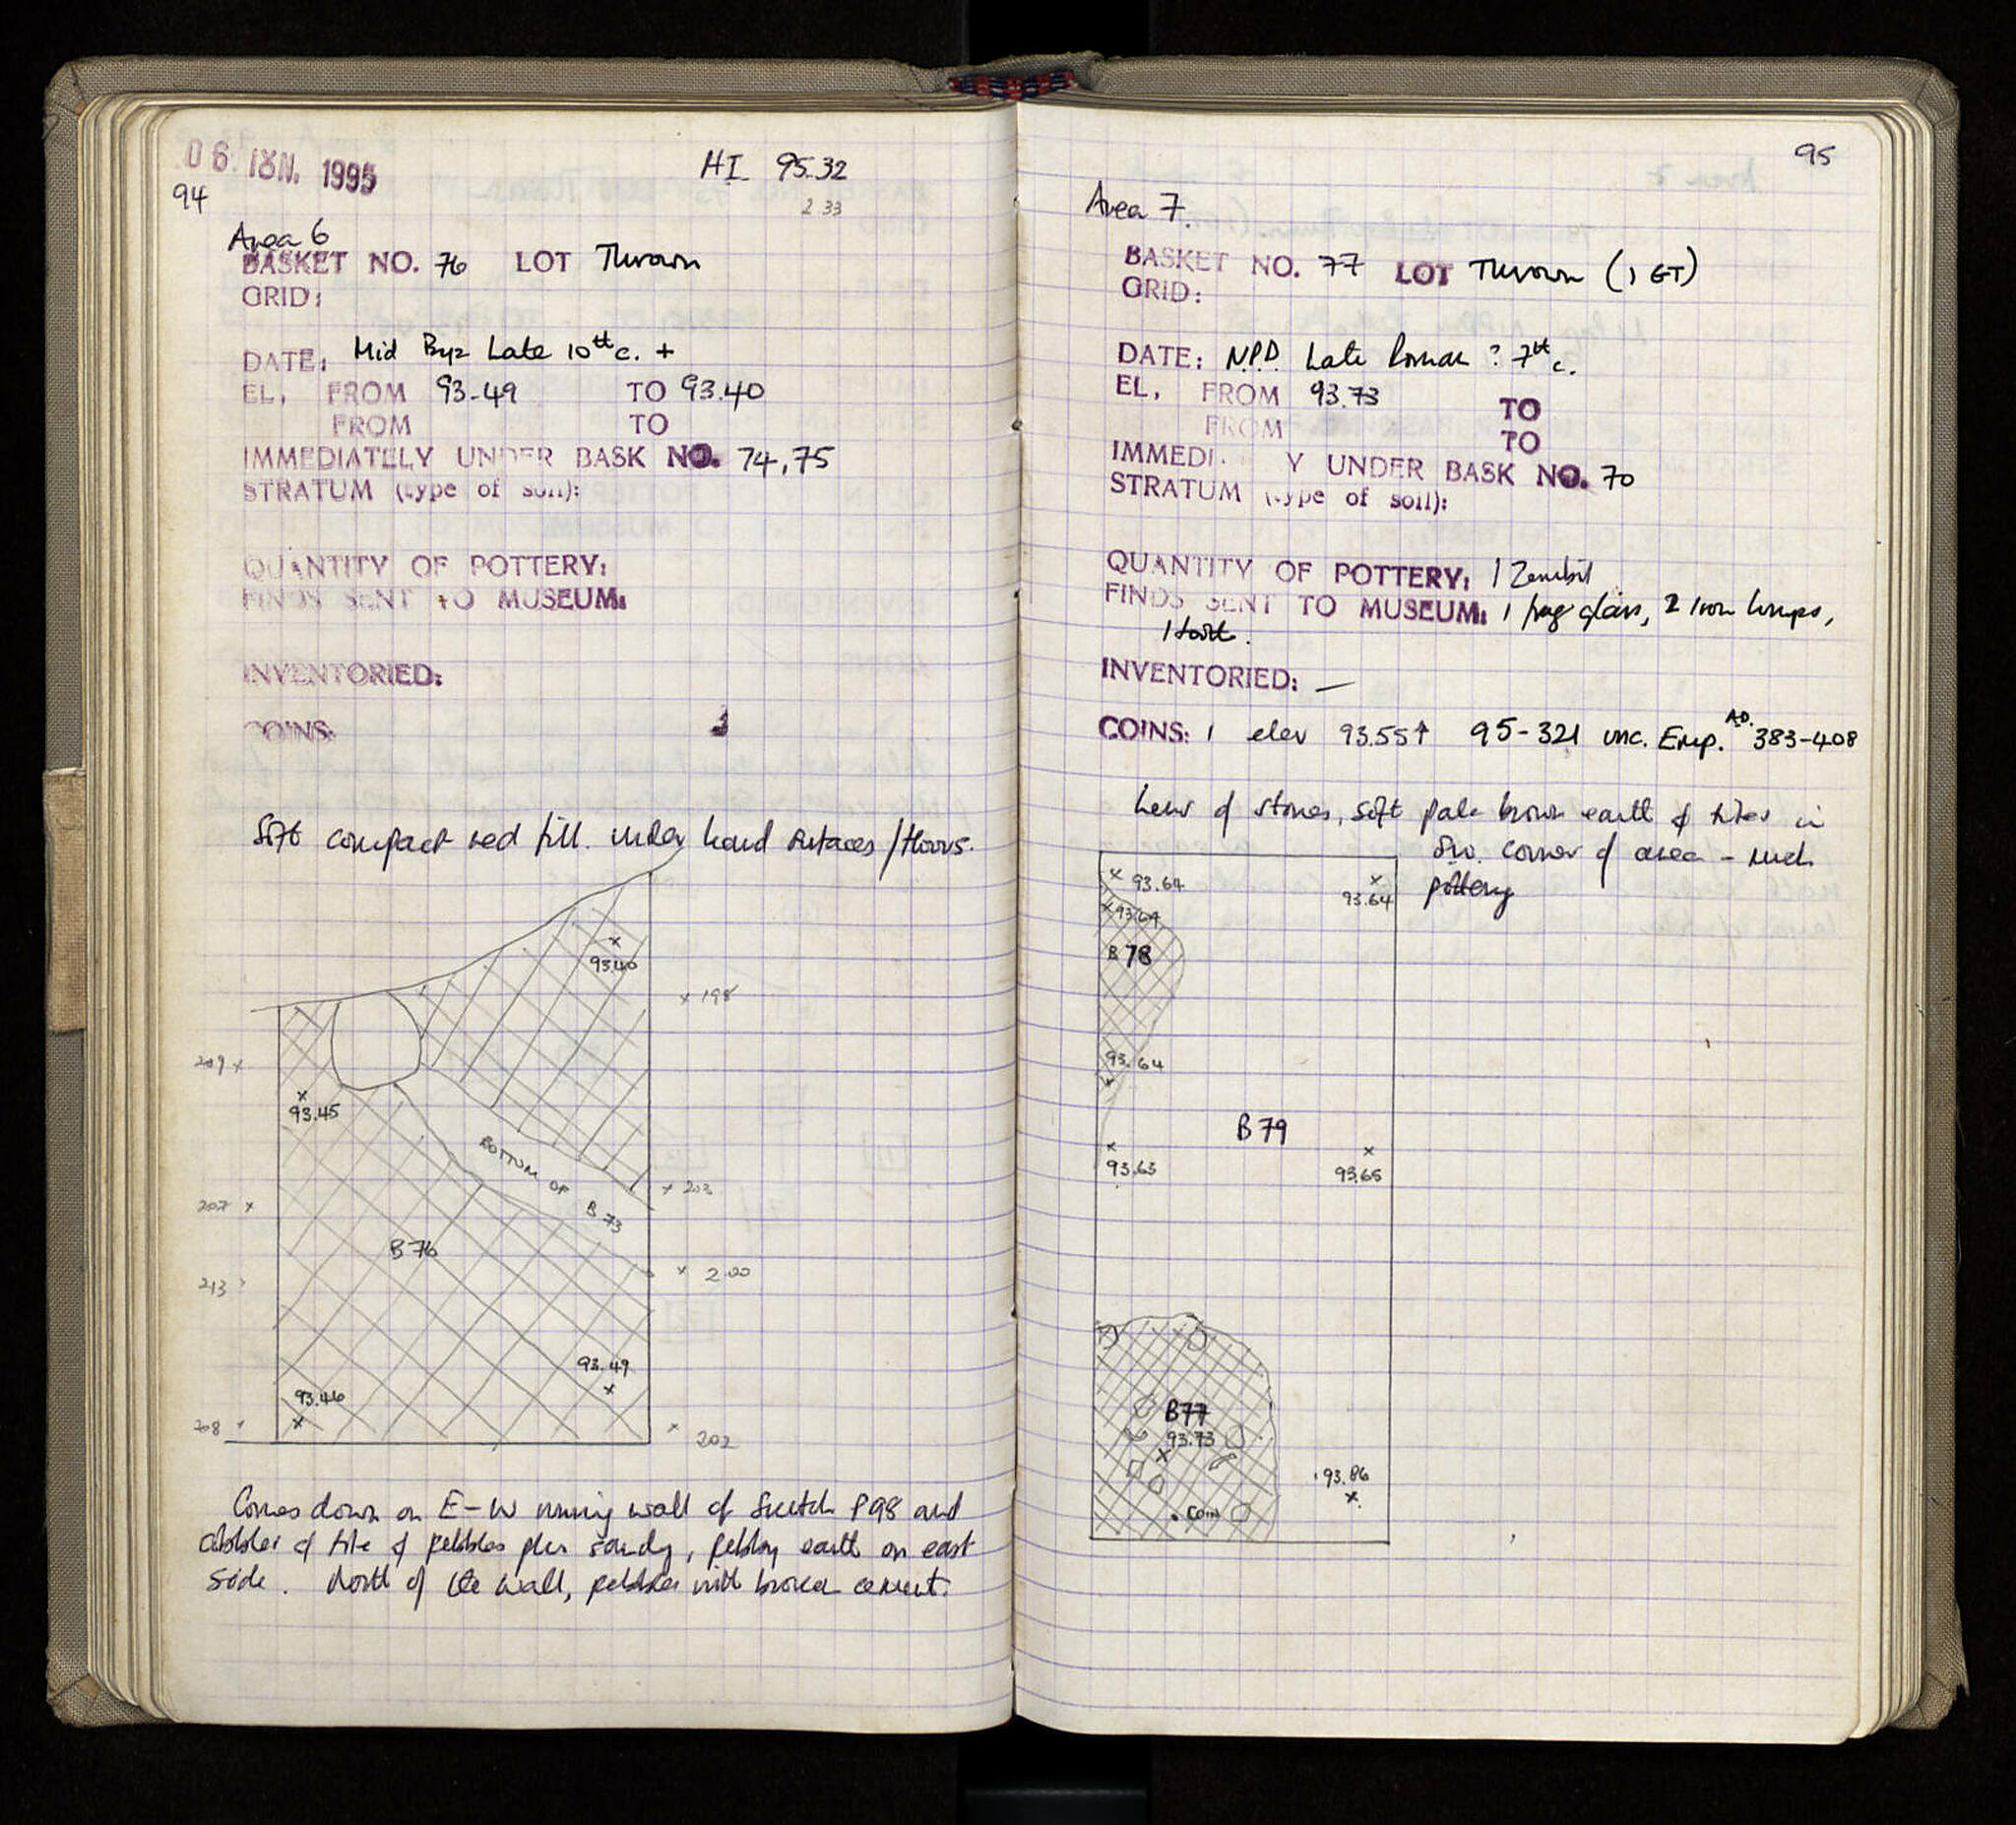 06 ΙΟΥΝ. 1995
94
HI 95.32
2 33
Area 6
BASKET NO. 76 LOT Thrown
GRID:
DATE: Mid Byz Late 10th c. +
EL, FROM 93.49 TO 93.40
FROM TO
IMMEDIATELY UNDER BASK NO. 74, 75
STRATUM (type of soil):
QUANTITY OF POTTERY:
FINDS SENT TO MUSEUM:
INVENTORIED:
COINS:
Soft compact red fill. under hard surfaces / floors.
93.40
x 198
209 x
93.45
BOTTOM OF B 73
x 203
207 x
B 76
x 2.00
213
93.49
93.46
208
202
Comes down on E-W running wall of Sketch P98 and
cobbles of tile & pebbles plus sandy, pebbly earth on east
side. North of the wall, pebbles with broken cement.
95
Area 7.
BASKET NO. 77 LOT Thrown (1 GT)
GRID:
DATE: N.P.D. Late Roman ? 7th c.
EL, FROM 93.73 TO
FROM TO
IMMEDI. Y UNDER BASK NO. 70
STRATUM (type of soil):
QUANTITY OF POTTERY: 1 Zembil
FINDS SENT TO MUSEUM: 1 frag glass, 2 iron lumps,
1
INVENTORIED: —
COINS: 1 elev 93.55↑ 95-321 unc. Emp. A.D. 383-408
Lens of stones, soft pale brown earth & tiles in
SW. corner of area - much
pottery
x 93.64
x 93.64
x 93.64
B 78
93.64
B 79
93.63
93.65
B77
93.73
93.86
COIN